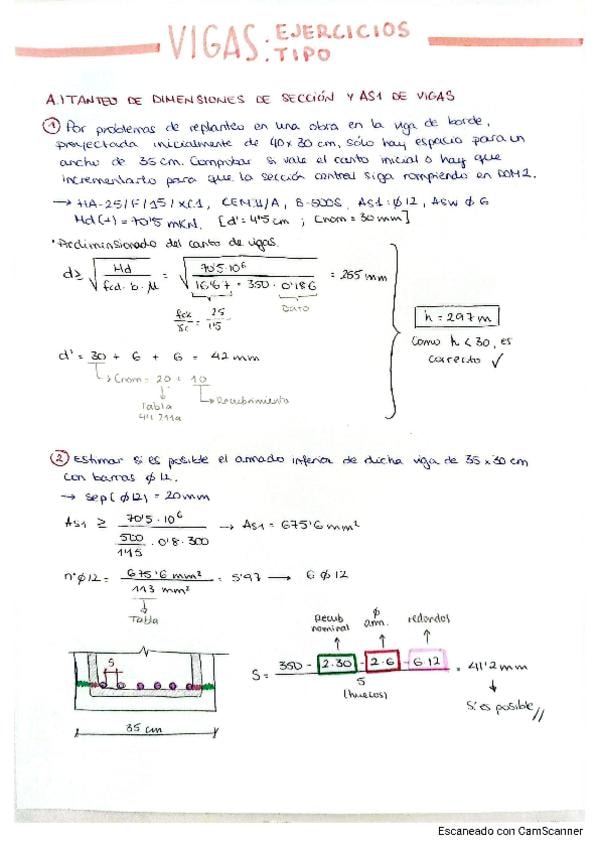 VIGAS: EJERCICIOS
TIPO
A.1 TANTEO DE DIMENSIONES DE SECCIÓN Y AS1 DE VIGAS
① Por problemas de replanteo en una obra en la viga de borde,
proyectada inicialmente de 40 x 30 cm, sólo hay espacio para un
ancho de 35 cm. Comprobar si vale el canto inicial o hay que
incrementarlo para que la sección central siga rompiendo en DOM2.
→ HA-25/F/15/XC1, CEM II/A, B-500S, AS1: Ø12, ASW Ø6
Md(+) = 70'5 mKN. [d' = 4'5 cm ; Cnom = 30 mm]
· Predimensionado del canto de vigas.
d ≥ √(Md / fcd · b · μ) = √(70'5 · 10⁶ / 16'67 · 350 · 0'186) = 255 mm
fck/γc = 25/1'5
Dato
d' = 30 + 6 + 6 = 42 mm
↳ Cnom = 20 + 10
Tabla
44.2.1.1a
↳ Recubrimiento
h = 297 m
Como h < 30, es
correcto ✓
② Estimar si es posible el armado inferior de dicha viga de 35 x 30 cm
con barras Ø12.
→ sep (Ø12) = 20 mm
AS1 ≥ 70'5 · 10⁶ / (500/1'15 · 0'8 · 300) → AS1 = 675'6 mm²
nº Ø12 = 675'6 mm² / 113 mm² = 5'97 → 6 Ø12
Tabla
Recub
nominal
Ø
arm.
redondos
S = (350 - 2·30 - 2·6 - 6·12) / 5 = 41'2 mm
(huecos)
Sí es posible //
S
35 cm
Escaneado con CamScanner